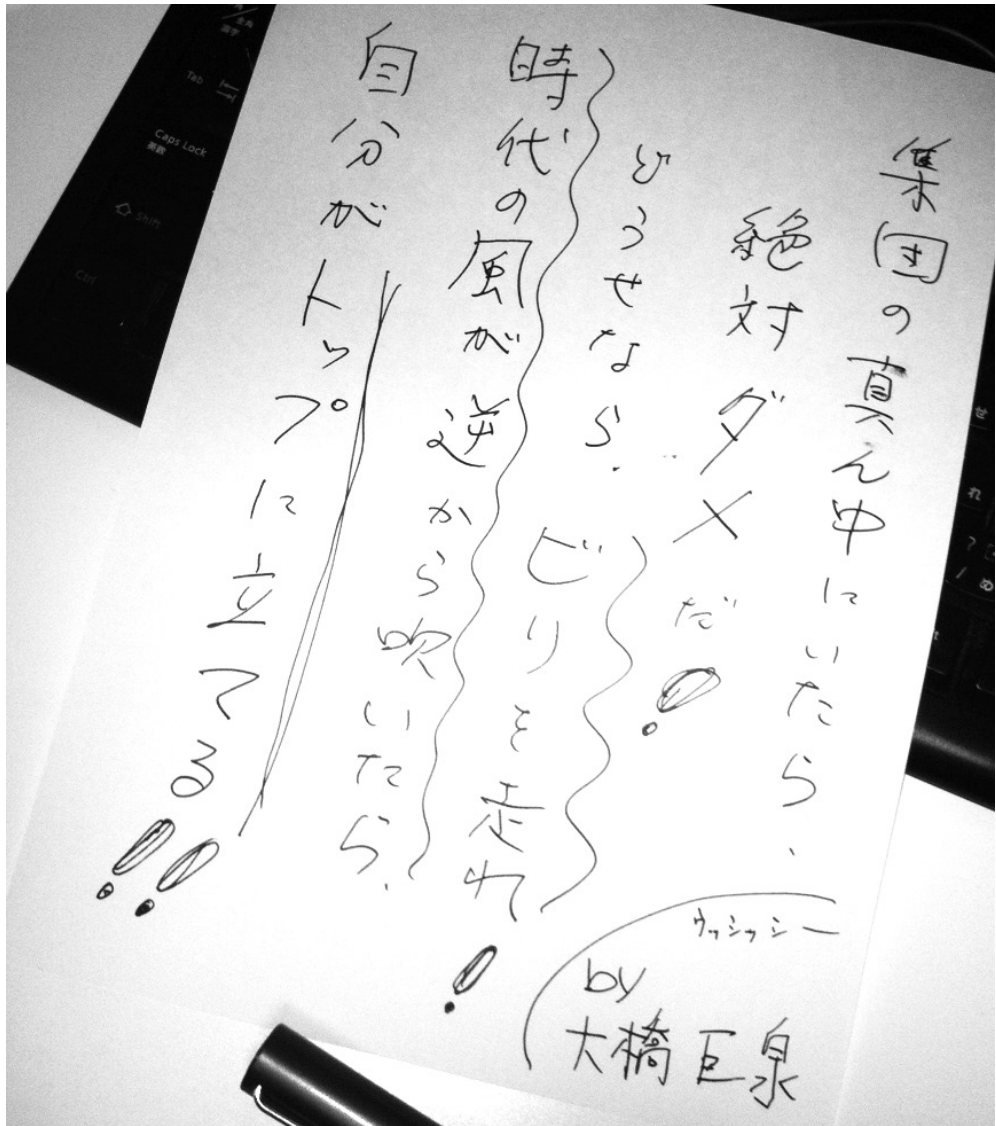 集団の真ん中にいたら、
絶対ダメだ!
どうせなら、
ビリを走れ!
時代の風が逆から吹いたら、
自分がトップに立てる!!
ウッシッシー
by
大橋巨泉
全角
漢字
Tab
Caps Lock
英数
Shift
Ctrl
せ
れ
?
/
め